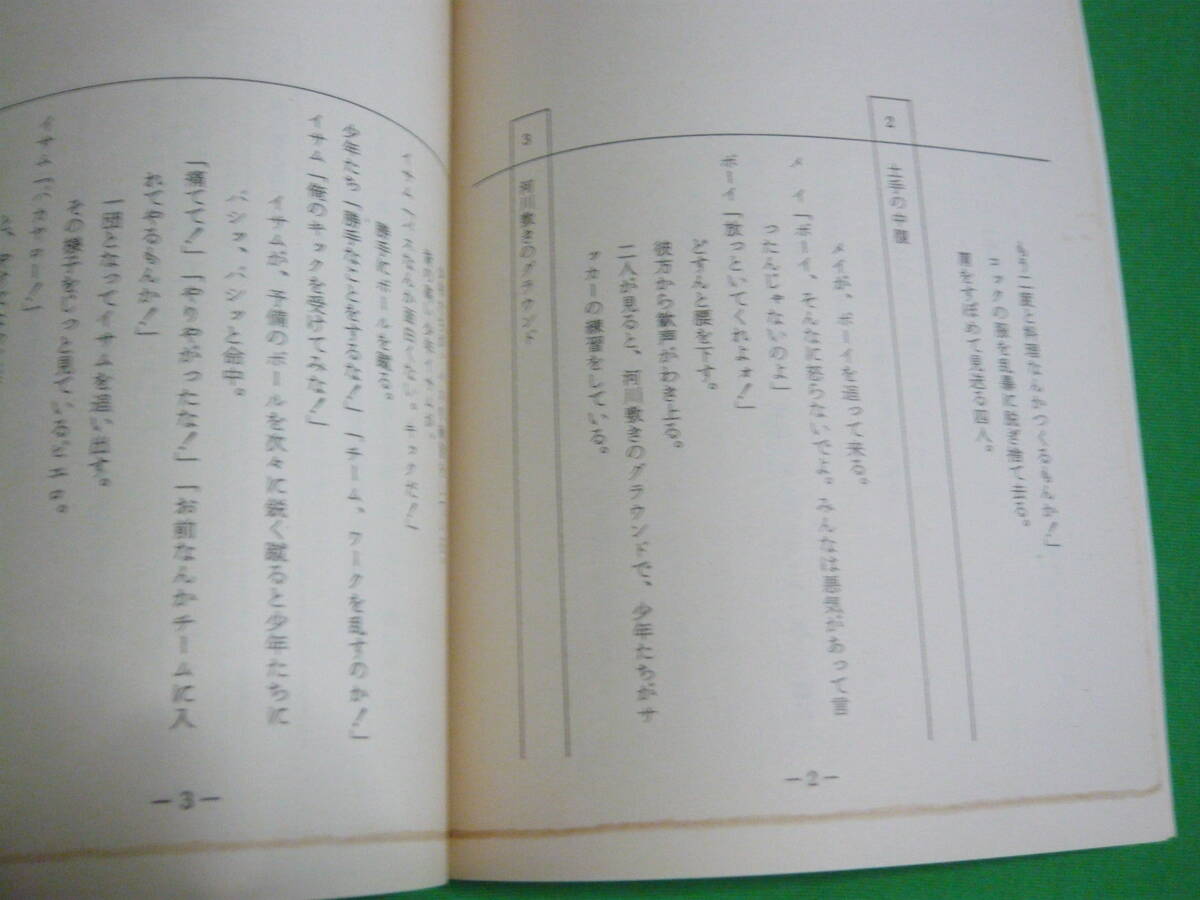 もう二度と料理なんかつくるもんか！」
コックの服を乱暴に脱ぎ捨て去る。
肩をすぼめて見送る四人。
2
土手の中腹
メイが、ボーイを追って来る。
メイ「ボーイ、そんなに怒らないでよ。みんなは悪気があって言
ったんじゃないのよ」
ボーイ「放っといてくれよォ！」
どすんと腰を下す。
彼方から歓声がわき上る。
二人が見ると、河川敷きのグラウンドで、少年たちがサ
ッカーの練習をしている。
3
河川敷きのグラウンド
－2－
イサム「パスなんか面白くない。キックだ！」
勝手にボールを蹴る。
少年たち「勝手なことをするな！」「チーム、ワークを乱すのか！」
イサム「俺のキックを受けてみな！」
イサムが、予備のボールを次々に鋭く蹴ると少年たちに
バシッ、バシッと命中。
「痛てて！」「やりやがったな！」「お前なんかチームに入
れてやるもんか！」
一団となってイサムを追い出す。
その様子をじっと見ているピエロ。
イサム「バカヤロー！」
－3－